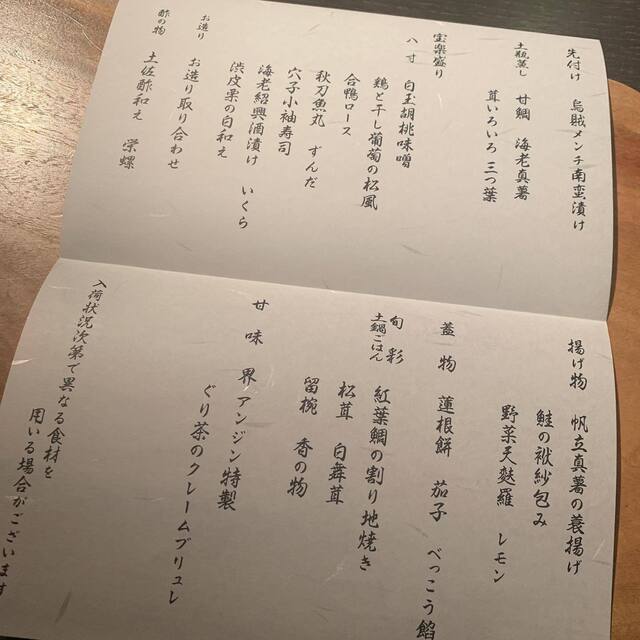 先付け 烏賊メンチ南蛮漬け
土瓶蒸し 甘鯛 海老真薯
茸いろいろ 三つ葉
宝楽盛り
八寸 白玉胡桃味噌
鶏と干し葡萄の松風
合鴨ロース
秋刀魚丸 ずんだ
穴子小袖寿司
海老紹興酒漬け いくら
渋皮栗の白和え
お造り お造り取り合わせ
酢の物 土佐酢和え 栄螺
揚げ物 帆立真薯の蓑揚げ
鮭の袱紗包み
野菜天麩羅 レモン
蓋物 蓮根餅 茄子 べっこう餡
旬彩 紅葉鯛の割り地焼き
土鍋ごはん 松茸 白舞茸
留椀 香の物
甘味 界アンジン特製
ぐり茶のクレームブリュレ
入荷状況次第で異なる食材を
用いる場合がございます